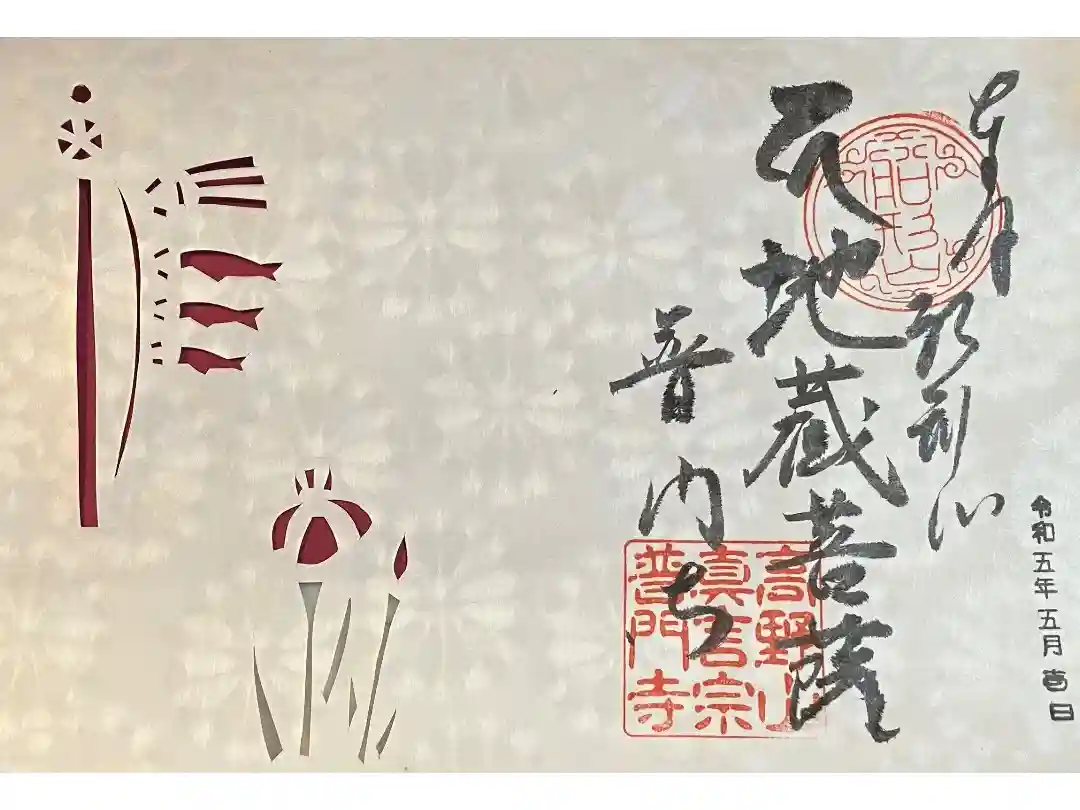 令和五年五月吉日
地蔵菩薩
普門寺
船形山
高野山
真言宗
普門寺